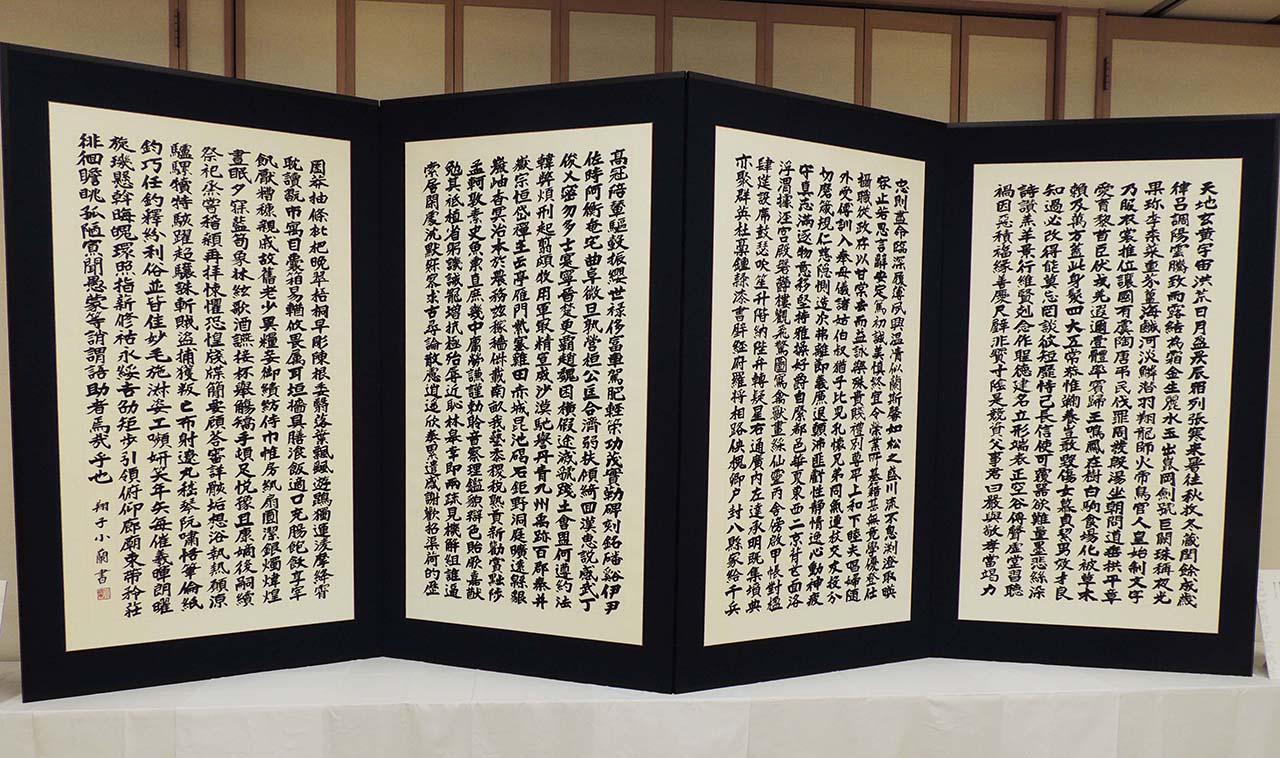 天地玄黄宇宙洪荒日月盈昃辰宿列張寒来暑往秋收冬蔵閏餘成歳
律呂調陽雲騰致雨露結為霜金生麗水玉出崑岡劍號巨闕珠稱夜光
果珎李柰菜重芥薑海鹹河淡鱗潜羽翔龍師火帝鳥官人皇始制文字
乃服衣裳推位讓國有虞陶唐弔民伐罪周發殷湯坐朝問道垂拱平章
愛育黎首臣伏戎羌遐邇壹體率賓歸王鳴鳳在樹白駒食場化被草木
賴及萬方蓋此身髮四大五常恭惟鞠養豈敢毀傷女慕貞絜男效才良
知過必改得能莫忘罔談彼短靡恃己長信使可覆器欲難量墨悲絲染
詩讃羔羊景行維賢剋念作聖德建名立形端表正空谷傳聲虚堂習聽
禍因惡積福緣善慶尺璧非寳寸陰是競資父事君曰嚴與敬孝當竭力
忠則盡命臨深履薄夙興温凊似蘭斯馨如松之盛川流不息淵澄取暎
容止若思言辭安定篤初誠美慎終宜令榮業所基籍甚無竟學優登仕
攝職従政存以甘棠去而益詠樂殊貴賤禮別尊卑上和下睦夫唱婦随
外受傅訓入奉母儀諸姑伯叔猶子比兒孔懐兄弟同氣連枝交友投分
切磨箴規仁慈隠惻造次弗離節義廉退顛沛匪虧性静情逸心動神疲
守真志滿逐物意移堅持雅操好爵自縻都邑華夏東西二京背芒面洛
浮渭據涇宮殿盤欝樓觀飛驚圖寫禽獸畫綵仙靈丙舎傍啓甲帳對楹
肆筵設席鼓瑟吹笙升階納陛弁轉疑星右通廣内左達承明既集墳典
亦聚群英杜藁鍾隸漆書壁經府羅将相路俠槐卿户封八縣家給千兵
高冠陪輦驅轂振纓世禄侈富車駕肥輕策功茂實勒碑刻銘磻谿伊尹
佐時阿衡奄宅曲阜微旦孰營桓公匡合濟弱扶傾綺迴漢惠説感武丁
俊乂密勿多士寔寧晉楚更覇趙魏困横假途滅虢踐土會盟何遵約法
韓弊煩刑起翦頗牧用軍最精宣威沙漠馳譽丹青九州禹跡百郡秦并
嶽宗恒岱禪主云亭雁門紫塞雞田赤城昆池碣石鉅野洞庭曠遠緜邈
巖岫杳冥治本於農務茲稼穡俶載南畝我藝黍稷税熟貢新勸賞黜陟
孟軻敦素史魚秉直庶幾中庸勞謙謹勅聆音察理鑑貌辯色貽厥嘉猷
勉其祗植省躬譏誡寵增抗極殆辱近恥林皐幸即兩疏見機解組誰逼
索居閑處沈默寂寥求古尋論散慮逍遥欣奏累遣慼謝歡招渠荷的歴
園莽抽條枇杷晩翠梧桐早彫陳根委翳落葉飄颻遊鵾獨運凌摩絳霄
耽讀翫市寓目囊箱易輶攸畏属耳垣墻具膳湌飯適口充腸飽飫享宰
飢厭糟糠親戚故舊老少異糧妾御績紡侍巾帷房紈扇圓潔銀燭煒煌
晝眠夕寐藍筍象牀絃歌酒讌接杯舉觴矯手頓足悦豫且康嫡後嗣續
祭祀烝嘗稽顙再拝悚懼恐惶牋牒簡要顧答審詳骸垢想浴執熱願涼
驢騾犢特駭躍超驤誅斬賊盗捕獲叛亡布射遼丸嵇琴阮嘯恬筆倫紙
鈞巧任釣釋紛利俗並皆佳妙毛施淑姿工嚬妍笑年矢毎催羲暉朗曜
旋璣懸斡晦魄環照指薪修祜永綏吉劭矩步引領俯仰廊廟束帶矜莊
徘徊瞻眺孤陋寡聞愚蒙等誚謂語助者焉哉乎也 翔子小蘭書